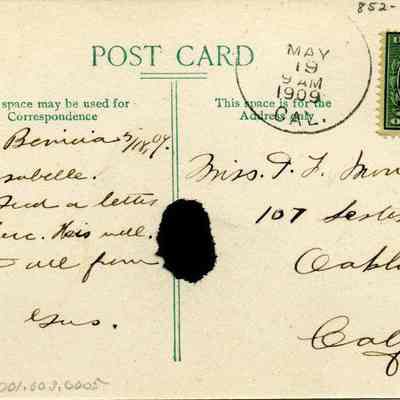 852-
POST CARD
space may be used for
Correspondence
This space is for the
Address only
MAY
19
9 AM
1909
CAL.
Benicia 5/18/09.
sabelle.
a letter
. He is well.
all from
Gus.
Miss. F. F. Mor
107
Oakl
Cal
001.603.0005